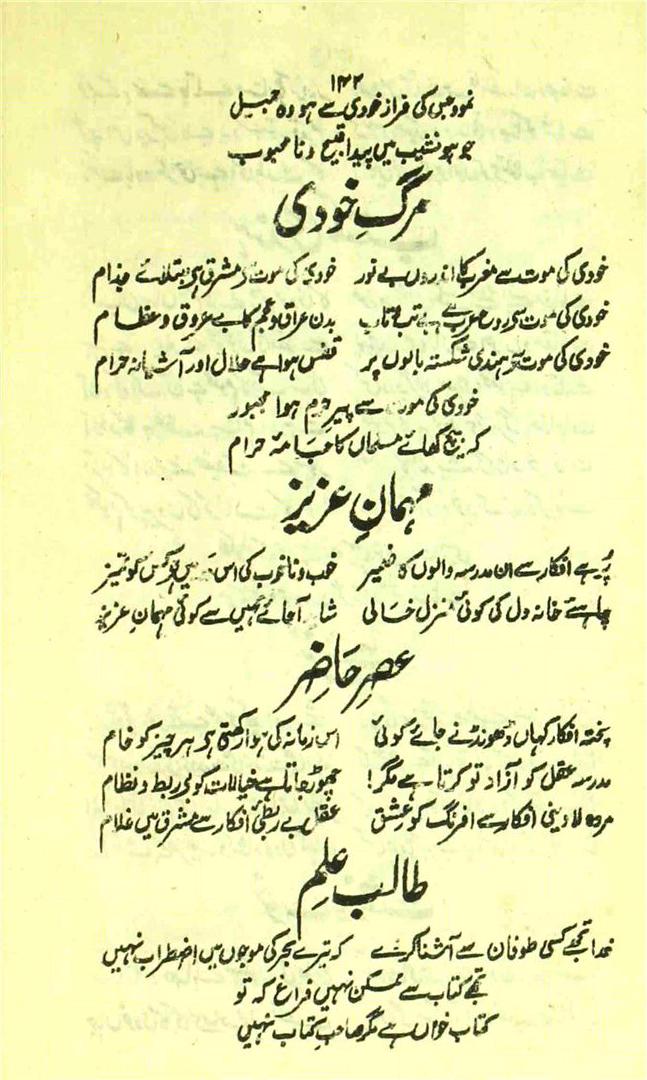 ۱۴۲
نمود جس کی فراز خودی سے ہو وہ جمیل
جو ہو نشیب میں پیدا قبیح و نا محبوب
مرگِ خودی
خودی کی موت سے مغرب کا اندروں بے نور خودی کی موت سے مشرق ہے مبتلائے جذام
خودی کی موت سے روح عرب ہے بے تب و تاب بدن عراق و عجم کا ہے بے عروق و عظام
خودی کی موت سے ہندی شکستہ بالوں پر قفس ہوا ہے حلال اور آشیانہ حرام
خودی کی موت سے پیر حرم ہوا مجبور
کہ بیچ کھائے مسلماں کا جامۂ حرام
مہمانِ عزیز
پُر ہے افکار سے ان مدرسہ والوں کا ضمیر خوب و ناخوب کی اس میں ہے کس کو تمیز
چاہئے خانہ دل کی کوئی منزل خالی شاید آجائے کہیں سے کوئی مہمان عزیز
عصرِ حَاضِر
پختہ افکار کہاں ڈھونڈنے جائے کوئی اس زمانہ کی ہوا رکھتی ہے ہر چیز کو خام
مدرسہ عقل کو آزاد تو کرتا ہے مگر! چھوڑ جاتا ہے خیالات کو بے ربط و نظام
مردہ لادینی افکار سے افرنگ کو عِشق عقل بے ربطیٔ افکار سے مشرق میں غلام
طالبِ علِم
خدا تجھے کسی طوفان سے آشنا کر دے کہ تیرے بحر کی موجوں میں اضطراب نہیں
تجھے کتاب سے ممکن نہیں فراغ کہ تو
کتاب خواں ہے مگر صاحبِ کتاب نہیں